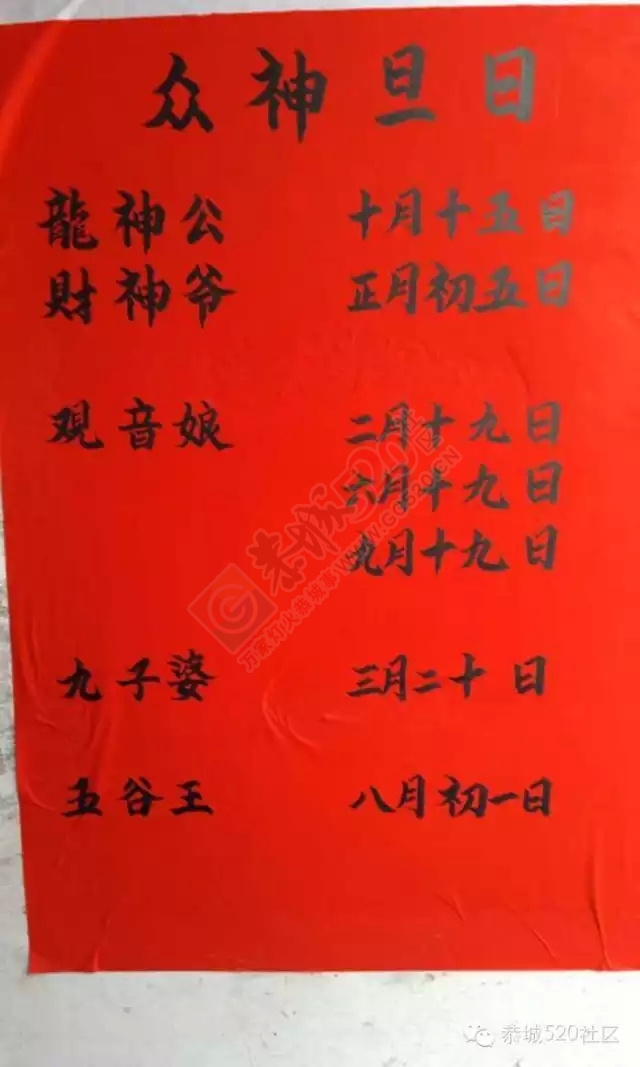 众神旦日
龍神公 十月十五日
財神爷 正月初五日
观音娘 二月十九日
六月十九日
九月十九日
九子婆 三月二十日
五谷王 八月初一日
恭城520社区
WWW.GC520.CN
万家灯火恭城事
恭城520社区